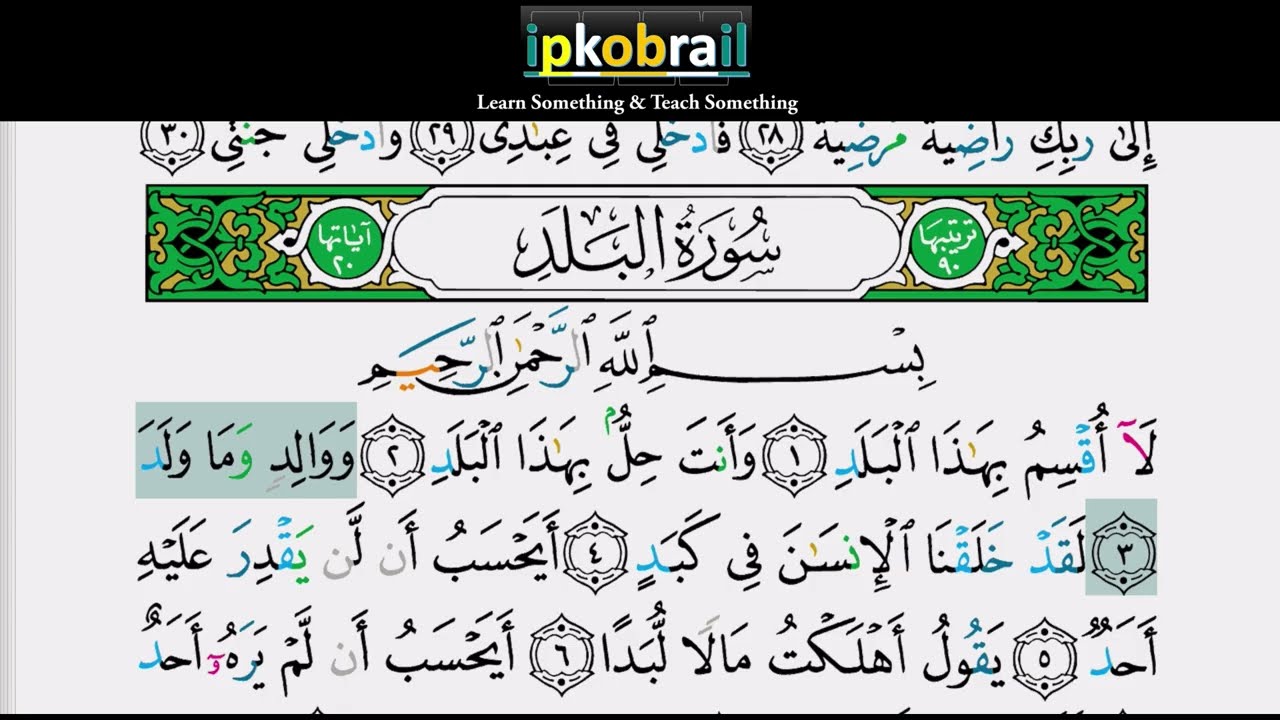 ipkobrail
Learn Something & Teach Something
إِلَىٰ رَبِّكِ رَاضِيَةً مَّرْضِيَّةً ٢٨ فَٱدْخُلِى فِى عِبَٰدِى ٢٩ وَٱدْخُلِى جَنَّتِى ٣٠
ترتيبها ٩٠ سُورَةُ الْبَلَدِ آياتها ٢٠
بِسْمِ ٱللَّهِ ٱلرَّحْمَٰنِ ٱلرَّحِيمِ
لَآ أُقْسِمُ بِهَٰذَا ٱلْبَلَدِ ١ وَأَنتَ حِلٌّۢ بِهَٰذَا ٱلْبَلَدِ ٢ وَوَالِدٍ وَمَا وَلَدَ
٣ لَقَدْ خَلَقْنَا ٱلْإِنسَٰنَ فِى كَبَدٍ ٤ أَيَحْسَبُ أَن لَّن يَقْدِرَ عَلَيْهِ
أَحَدٌ ٥ يَقُولُ أَهْلَكْتُ مَالًا لُّبَدًا ٦ أَيَحْسَبُ أَن لَّمْ يَرَهُۥٓ أَحَدٌ